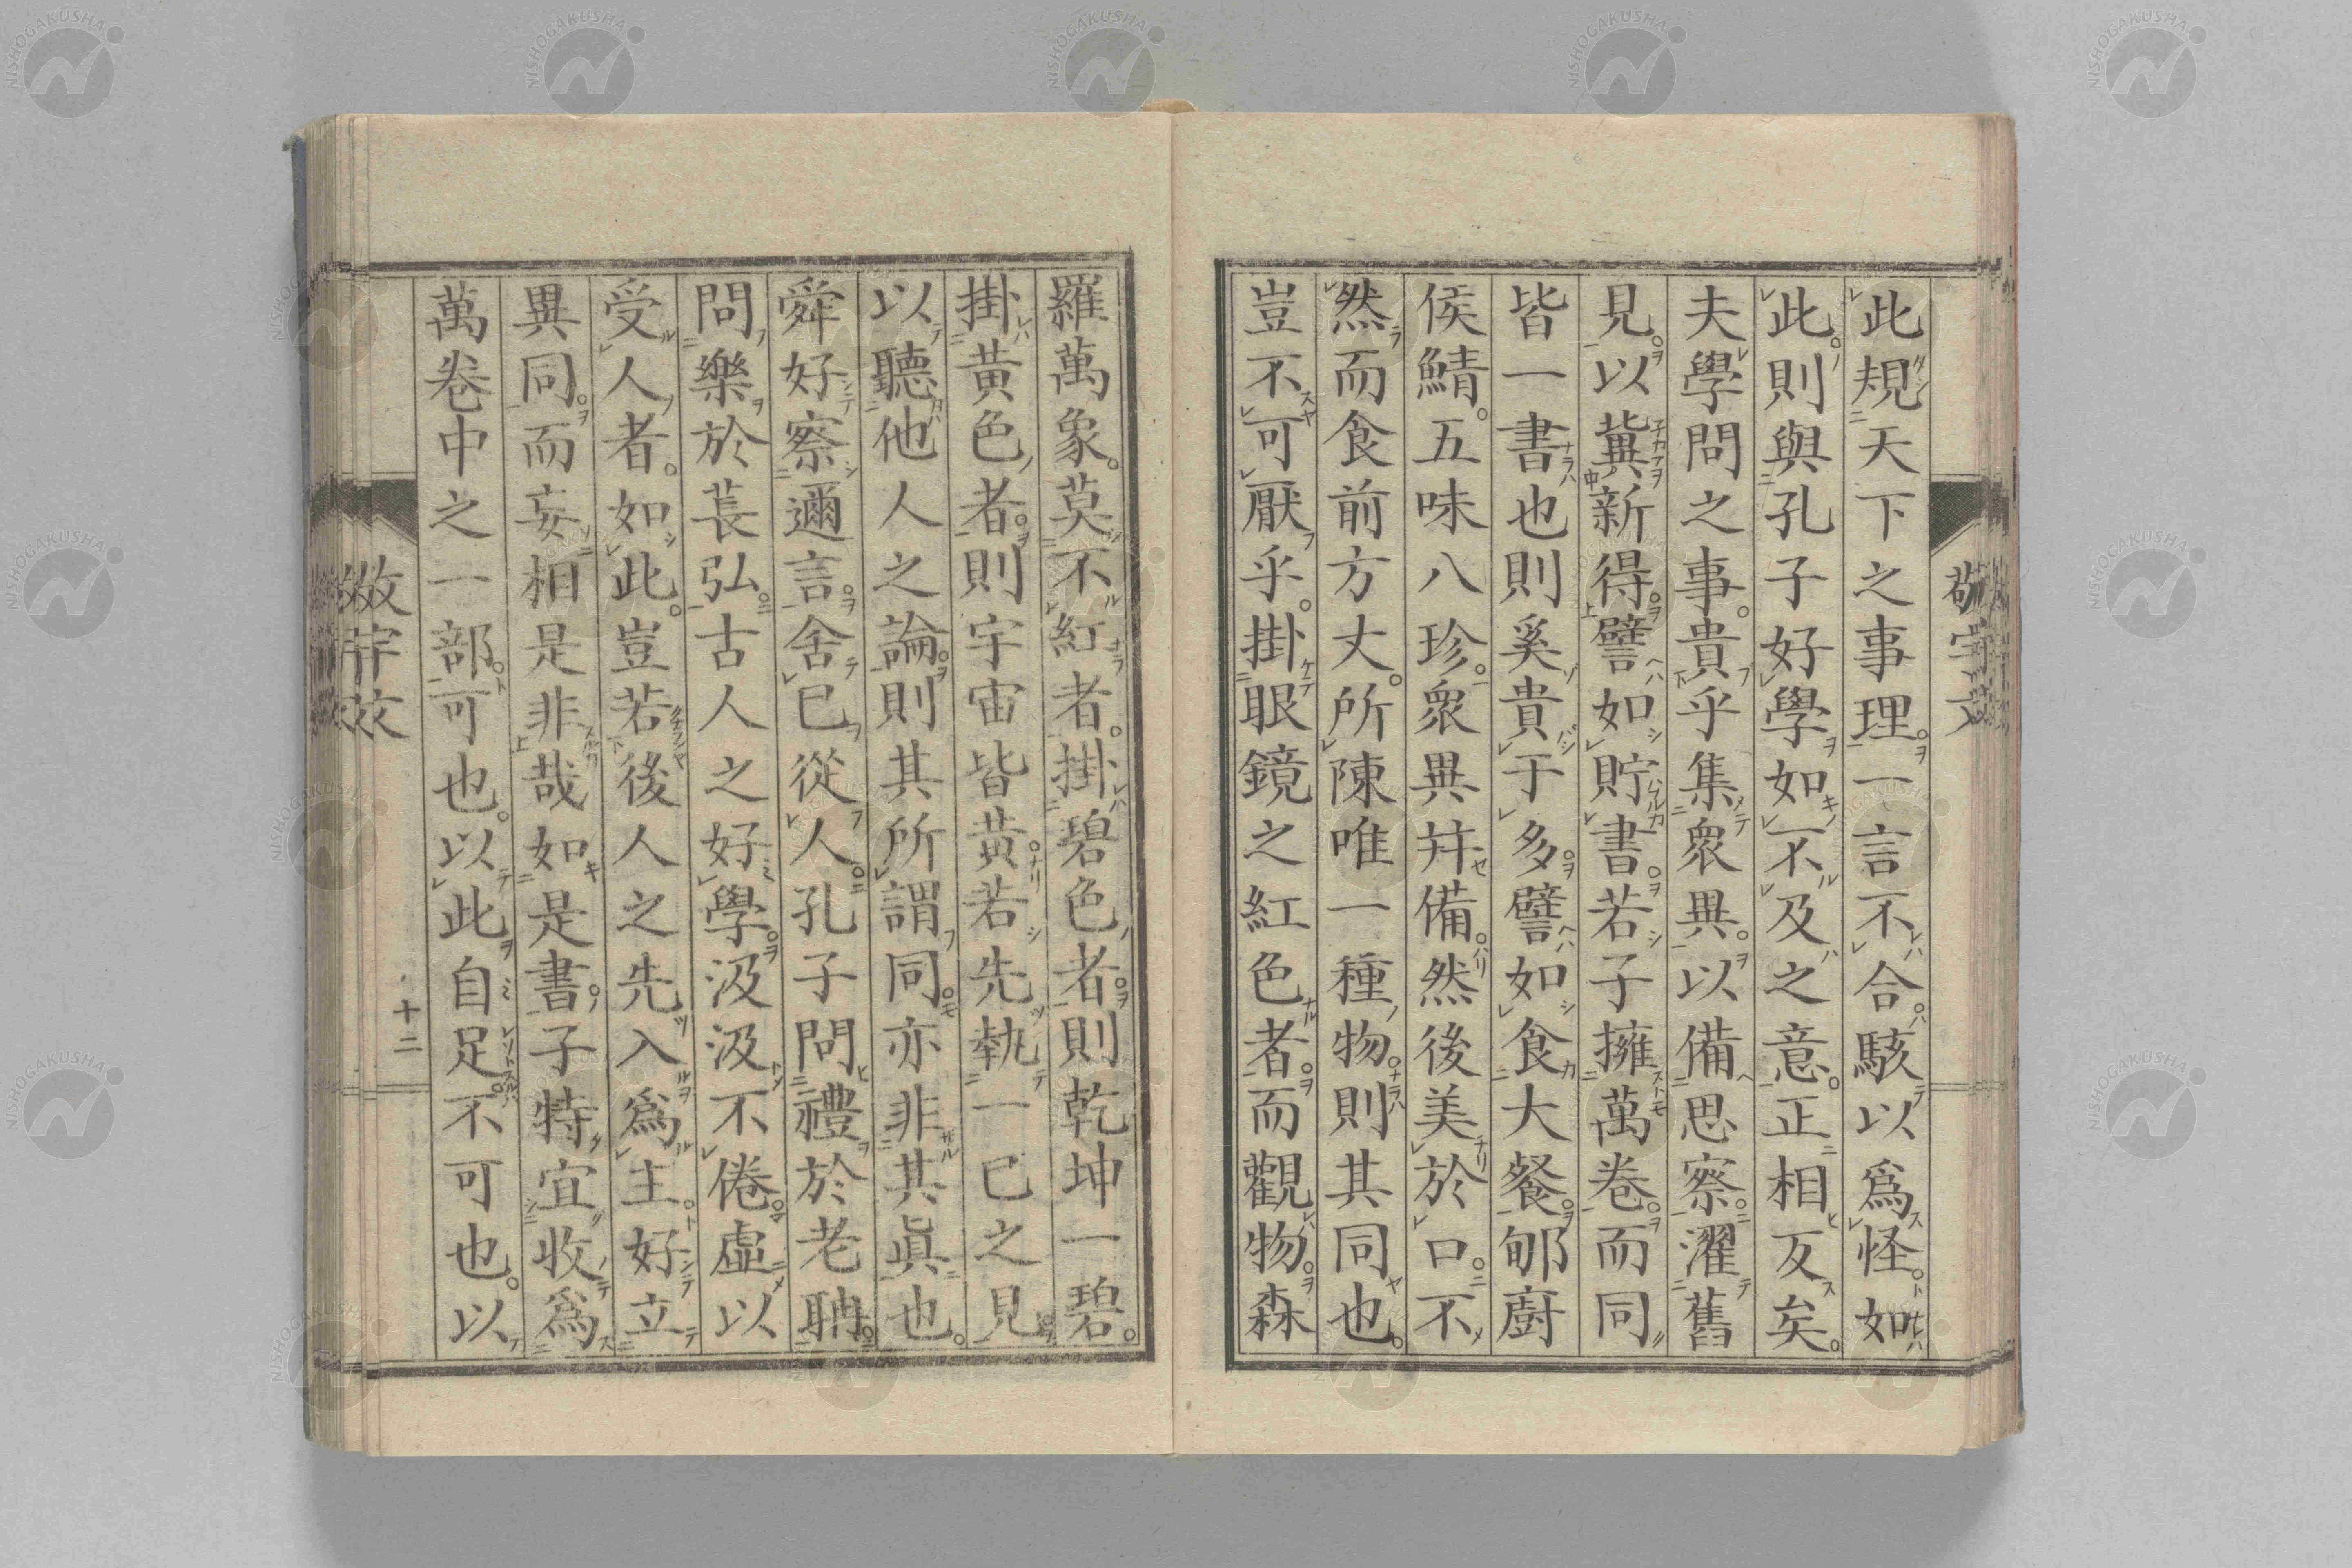 敬宇文
此規天下之事理一言不合駭以爲怪如
此則與孔子好學如不及之意正相反矣
夫學問之事貴乎集衆異以備思察濯舊
見以冀新得譬如貯書若子擁萬卷而同
皆一書也則奚貴于多譬如食大餐郇廚
侯鯖五味八珍衆異幷備然後美於口不
然而食前方丈所陳唯一種物則其同也
豈不可厭乎掛眼鏡之紅色者而觀物森
羅萬象莫不紅者掛碧色者則乾坤一碧
掛黃色者則宇宙皆黃若先執一己之見
以聽他人之論則其所謂同亦非其眞也
舜好察邇言舍己從人孔子問禮於老聃
問樂於萇弘古人之好學汲汲不倦虛以
受人者如此豈若後人之先入爲主好立
異同而妄相是非哉如是書子特宜收爲
萬卷中之一部可也以此自足不可也以
敬宇文
十二
NISHOGAKUSHA